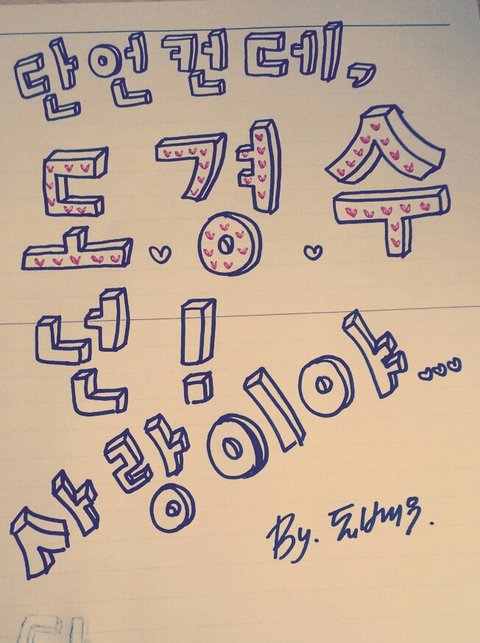 단언컨데,
도♡경♡수
넌!
사랑이야...♡♡♡
By.